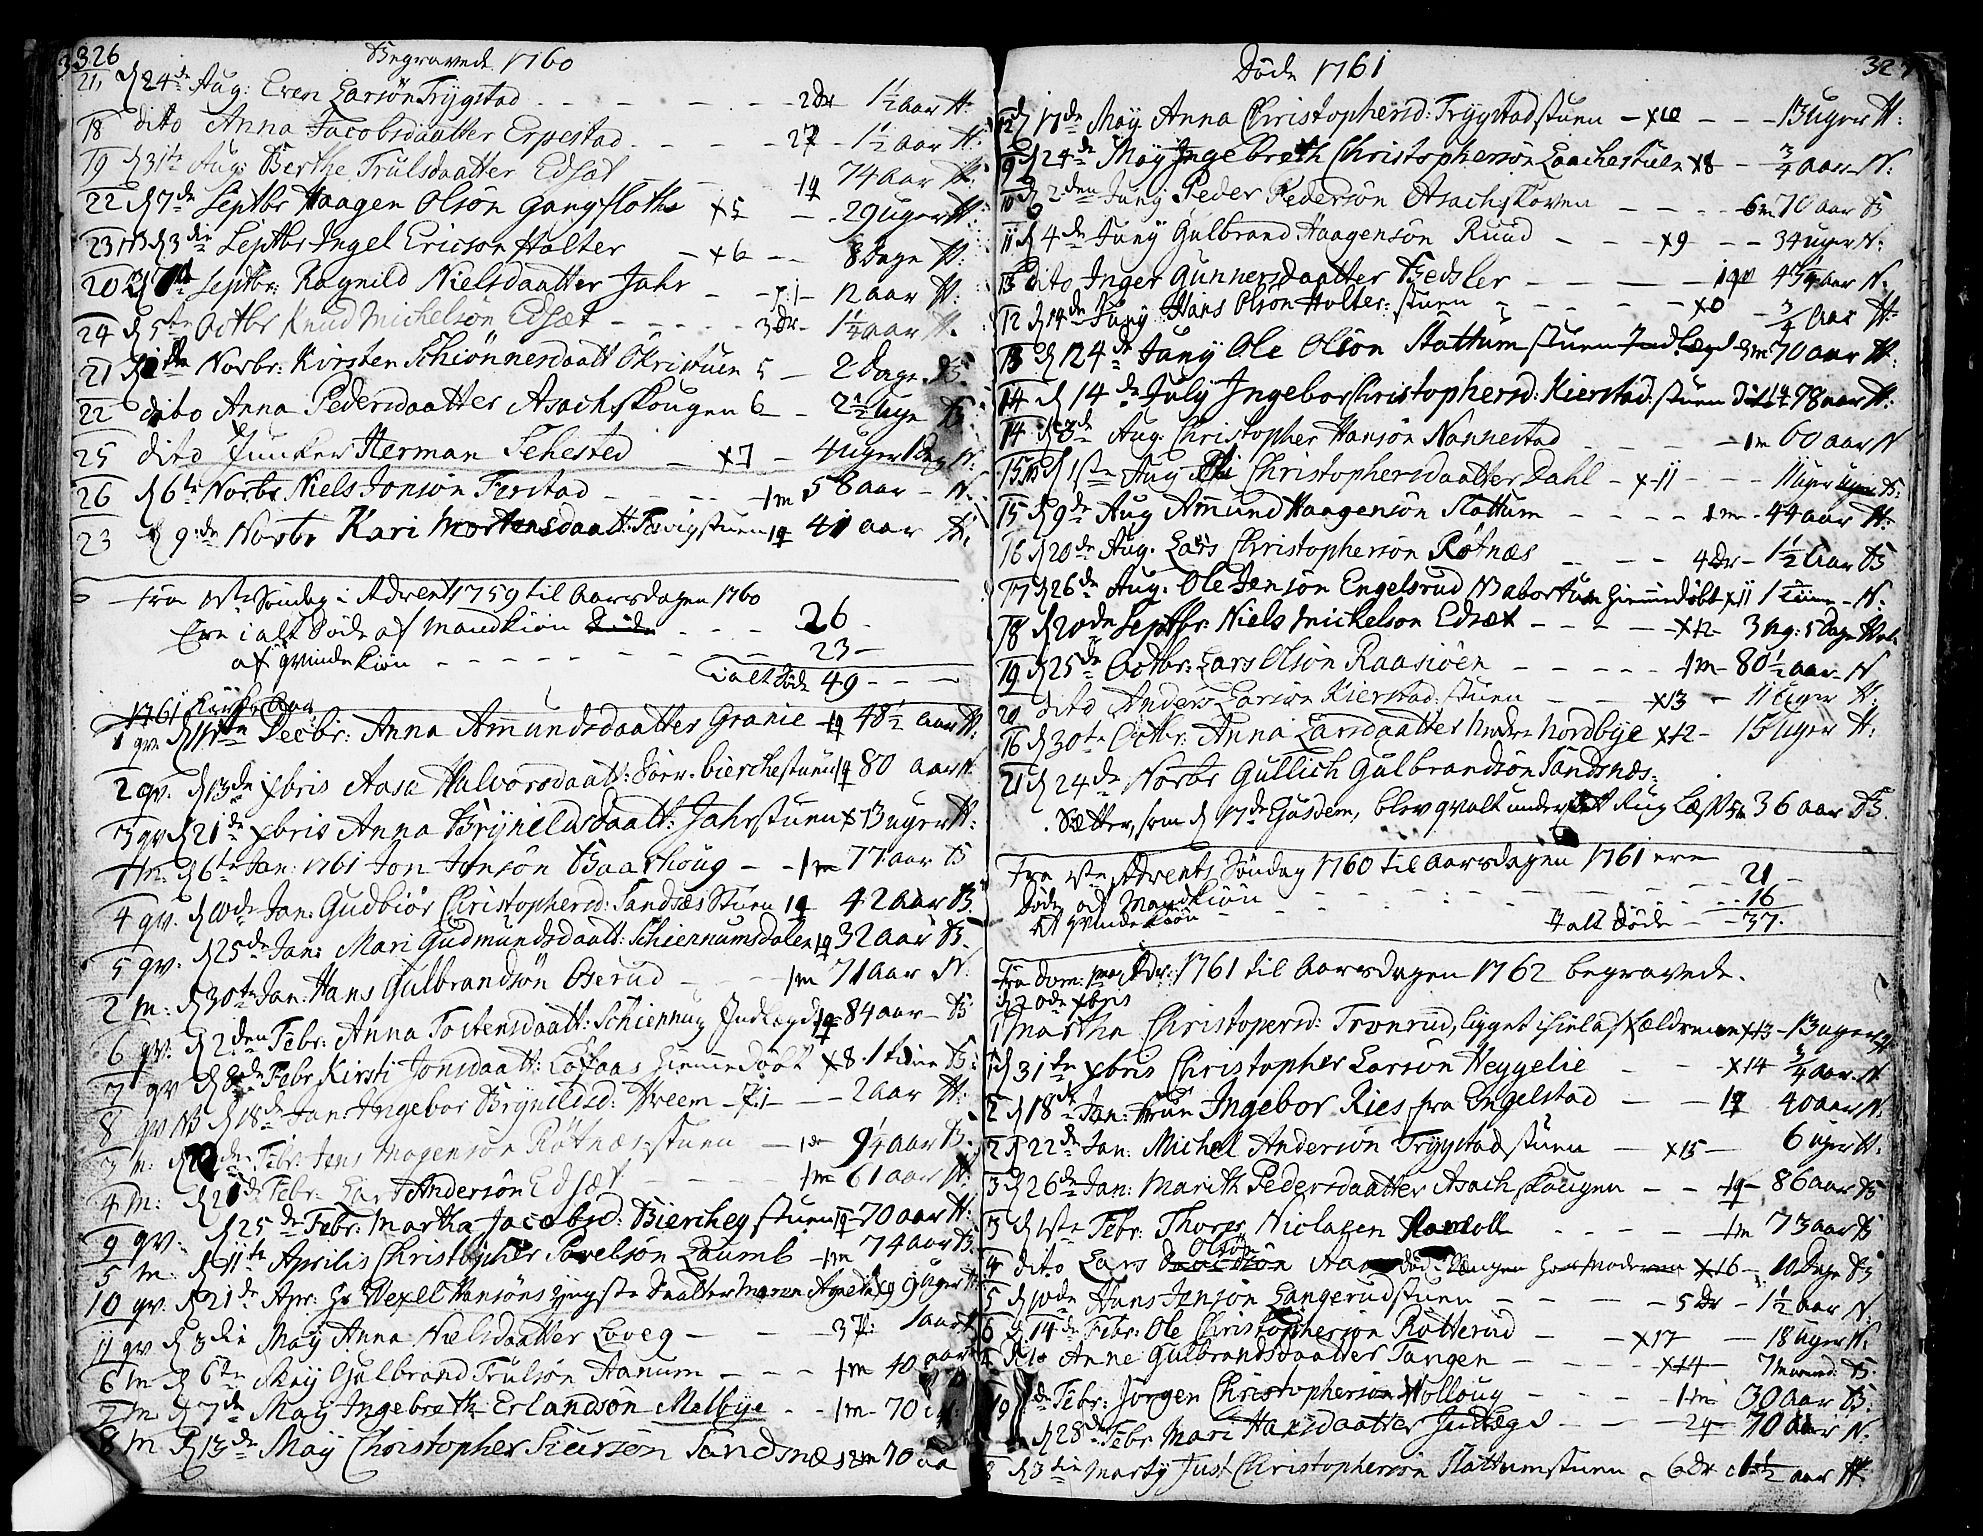 326
Begravede 1760
21, d 24de Aug: Even Larsön Trygstad - - - - - 2dr 1½ aar H:
18 dito Anna Jacobsdaatter Erpestad - - - - 2 - 1½ aar H:
19 d 31te Aug: Berthe Trulsdaatter Edsæt - - - 1q 74 aar H:
22 d 7de Septbr Haagen Olsön Gangfloth x5 - 29 uger H:
23 d 3die Septbr Ingel Ericson Holter - x6 - - 8 dage H:
20 Septbr: Ragnild Nielsdaatter Jahr - - 12 aar H:
24 d 5te Octbr Knud Michelsön Edsæt - - - - 3dr - 1¼ aar H.
21 Novbr: Kirsten Schiönnesdaatt: 5 - 2 dage B.
22 dito Anna Pedersdaatter Asachskougen 6 - 2½ uge B:
25 dito Juncker Herman Sehested - x7 - 4 uger N:
26 d 6te Novbr Niels Jonsön Ferstad - - - - 1m 58 aar - N.
23 d 9de Novbr Kari Mortensdaatt: 1q 41 aar H.
fra 1ste Söndag i Advent 1759 til Aarsdagen 1760
Ere i alt Döde af Mandkiön - - - - 26 -
af qvindekiön - - - - - - - - 23 -
i alt döde 49 - - -
1761 Kirke Aar
1 qv. d 11te Decbr: Anna Amundsdaatter Granie - 1q 48½ aar H:
2 qv. d 13de xbris Aasa Halvorsdaatt: bierchestuen 1q 80 aar N
3 qv d 21de xbris Anna Brynildsdaatt: Jahrstuen x 13 uger H:
1 m: d 6te Jan: 1761 Jon Jonsön Baarhoug - - 1m 77 aar B
4 qv. d 10de Jan: Gudbiör Christophersd: Sandsæs Stuen 1q 42 aar B.
5 qv: d 25de Jan: Mari Gudmundsdaatt: Schiernumsdalen 1q 32 aar B.
2 m: d 30te Jan: Hans Gulbrandsön Oserud - - - 1m 71 aar N.
6 qv: d 2den Febr: Anna Tostensdaatt: Schiennug Indlægd 1q 84 aar - B
7 qv d 8de Febr Kirsti Jonsdaatt: Löfaas Hiemmedöbt x8 - 1 time B:
8 qv NB d 18de Jan: Ingebor Brynildsd: Hreem - - - 2 aar H:
3 m: Febr: Jens Mogensön Rötnæs stuen - 1dr 9¼ aar B.
4 m: d Febr: Lars Andersön Edsæt - - - - 1m 61 aar H.
9 qv: d 25de Febr: Martha Jacobsd: Bierchestuen 1q 70 aar H:
5 m: d 11te Aprilis Christopher Povelsön Laumb - 1m 74 aar B.
10 qv. d 21de Apr: Hr Wexel Hansöns yngste Daatter Maren 9 uger H
11 qv d 3die May Anna Nielsdaatter Loveg - - - 3 1 aar
6 m d 6te May Gulbrand Trulsön Hanum - - - 1m 40 aar
7 m d 7de May Ingebreth Erlandsön Melbye - - 1m 70
8 m d 13de May Christopher Siursön Sandsnæs 1m 70 aa
Döde 1761
327
12 d 17de May Anna Christophersd: Trygstadstuen - x10 - - - 13 uger H:
9 d 24de May Ingebreth Christophersön Laachestuen x8 - ¾ aar - N:
10 d 2den Juny Peder Pedersön Asachskoven - - - - 6m 70 aar B
11 d 4de Juny Gulbrand Haagensön Ruud - - - x9 - - 34 uger N:
13 dito Inger Gunnersdaatter Bedsler - - - - 1q aar N.
12 d 14de Juny Hans Olsön Holter: stuen - - - - x0 - ¾ Aar H:
13 d 24de Juny Ole Olsön Stattum stuen Indlægd 70 aar H:
14 d 14de July Ingebor Christophersd: Kierstad: stuen 78 aar H:
14 d 3de Aug: Christopher Hansön Nannestad - - - - 1m 60 aar N
15 d 1ste Aug Christophersdaatter Dahl - x11 - - - 11 uger B.
15 d 9de Aug Amund Haagensön Slattum - - - - 1m - 44 aar H:
16 d 20de Aug. Lars Christophersön Rötnæs - - - 4dr - 1½ Aar B
17 d 26de Aug: Ole Jensön Engelsrud hiemmedöbt x11 1 time - N:
18 d 20de Septbr: Niels Mickelsön Edsæt - - - - x12 3 ug: 5 dage
19 d 25de Octbr: Lars Olsön Raasiöen - - - - - 1m - 80½ aar - N
20 dito Anders Larsön Kierstad: stuen - - - - x13 - 11 uger H:
16 d 30te Octbr: Anna Larsdaatter Nordbye x12 - 15 uger H:
21 d 24de Novbr Gullich Gulbrandsön Sandsnes-
Sætter, som d 17de Ejusdem, blev qvalt under et Rug Læss 36 aar B.
fra 1ste Advents Söndag 1760 til Aarsdagen 1761 ere
Döde af Mandkiön - - - - - - - - - 21 -
Af qvindekiön - - - - - - - - - - 16
I alt Döde - - 37.
Fra Dom: 1ma Adv: 1761 til Aarsdagen 1762 begravede.
d 20de xbris
1 Martha Christopersd: Tronrud, ligget ihiel af Forældrene x13 - 13 uger
1 d 31te xbris Christopher Larsön Heggelie - - x14 ¾ aar N
2 d 18de Jan: Frue Ingebor Ries fra Engelstad - - 1q 40 aar N.
2 d 22de Jan: Michel Andersön Trygstadstuen - x15 - 6 uger H.
3 d 26de Jan: Marith Pedersdaatter Asachskougen - - 1q - 86 aar B
3 d 1ste Febr: Thorer Niclasen - - - - 1m 73 aar B
Olsön
4 dito Lars x16 - 10 dage B
5 d 10de Hans Jensön Langerudstuen - - - - 5dr - 1½ aar N.
6 d 14de Febr: Ole Christophersön Rotterud - - x17 - 18 uger N:
4 Anne Gulbrandsdaatter Tangen - - - - x14 - 7 maaned: B.
Febr: Jörgen Christophersön Holloug - - - - 1m 30 aar B.
d 28de Febr Mari Hansdaatter Indlægd - - - 70 aar N.
8 d 3die Marty Just Christophersön Slattumstuen - 6dr aar H.